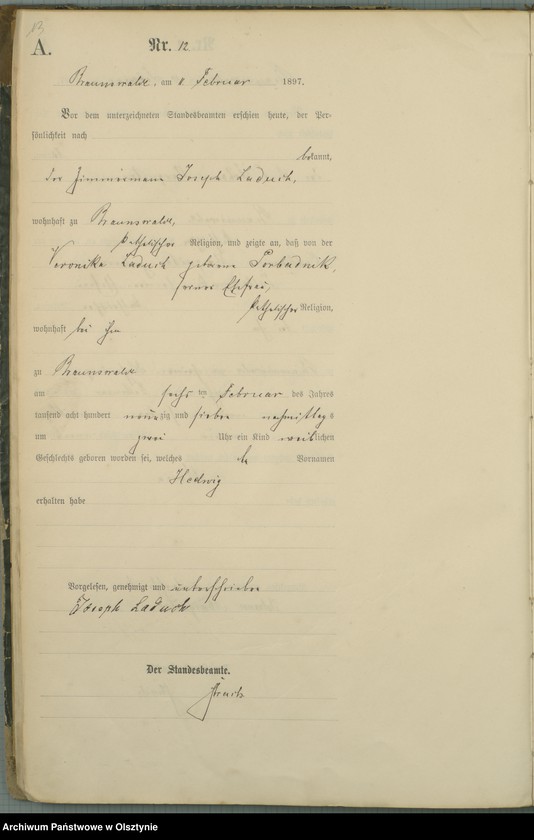 13
A. Nr. 12
Braunswalde, am 8. Februar 1897.
Vor dem unterzeichneten Standesbeamten erschien heute, der Per-
sönlichkeit nach
bekannt,
der Zimmermann Joseph Laduch,
wohnhaft zu Braunswalde,
katholischer Religion, und zeigte an, daß von der
Veronika Laduch geborene Porbadnik,
seiner Ehefrau,
katholischer Religion,
wohnhaft bei ihm
zu Braunswalde
am sechs ten Februar des Jahres
tausend acht hundert neunzig und sieben nachmittags
um zwei Uhr ein Kind weiblichen
Geschlechts geboren worden sei, welches den Vornamen
Hedwig
erhalten habe
Vorgelesen, genehmigt und unterschrieben
Joseph Laduch
Der Standesbeamte.
Archiwum Państwowe w Olsztynie